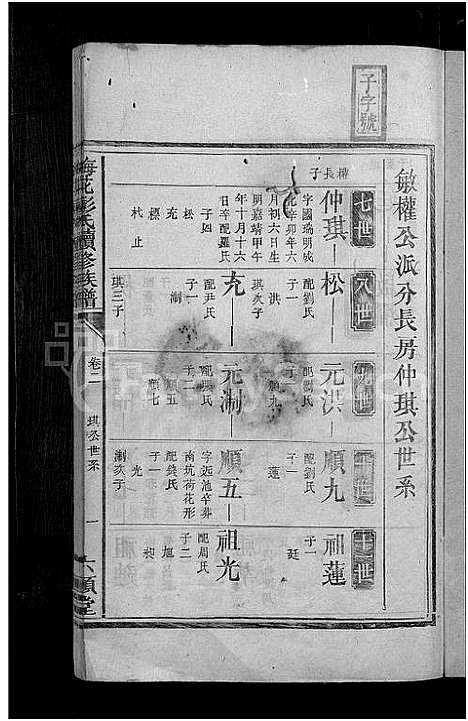 子字號
敏權公派分長房仲琪公世系
七世
八世
九世
十世
十一世
權長子
仲琪
松
元洪
順九
祖蓮
字國瑞明成
化辛卯年六
月初六日生
明嘉靖甲午
年十月十六
日辛配羅氏
子四
松
充
標
林止
配劉氏
子一
洪
琪次子
子一
順九
配劉氏
子一
蓮
子一
廷
充
元渆
順五
祖光
配尹氏
子一
琪三子
子二
順五
順七
字遠池辛葬
南坑荷花形
配錢氏
子一
光
配周氏
子二
旭
昶
梅花彭氏續修族譜
卷二
琪公世系
一
六順堂